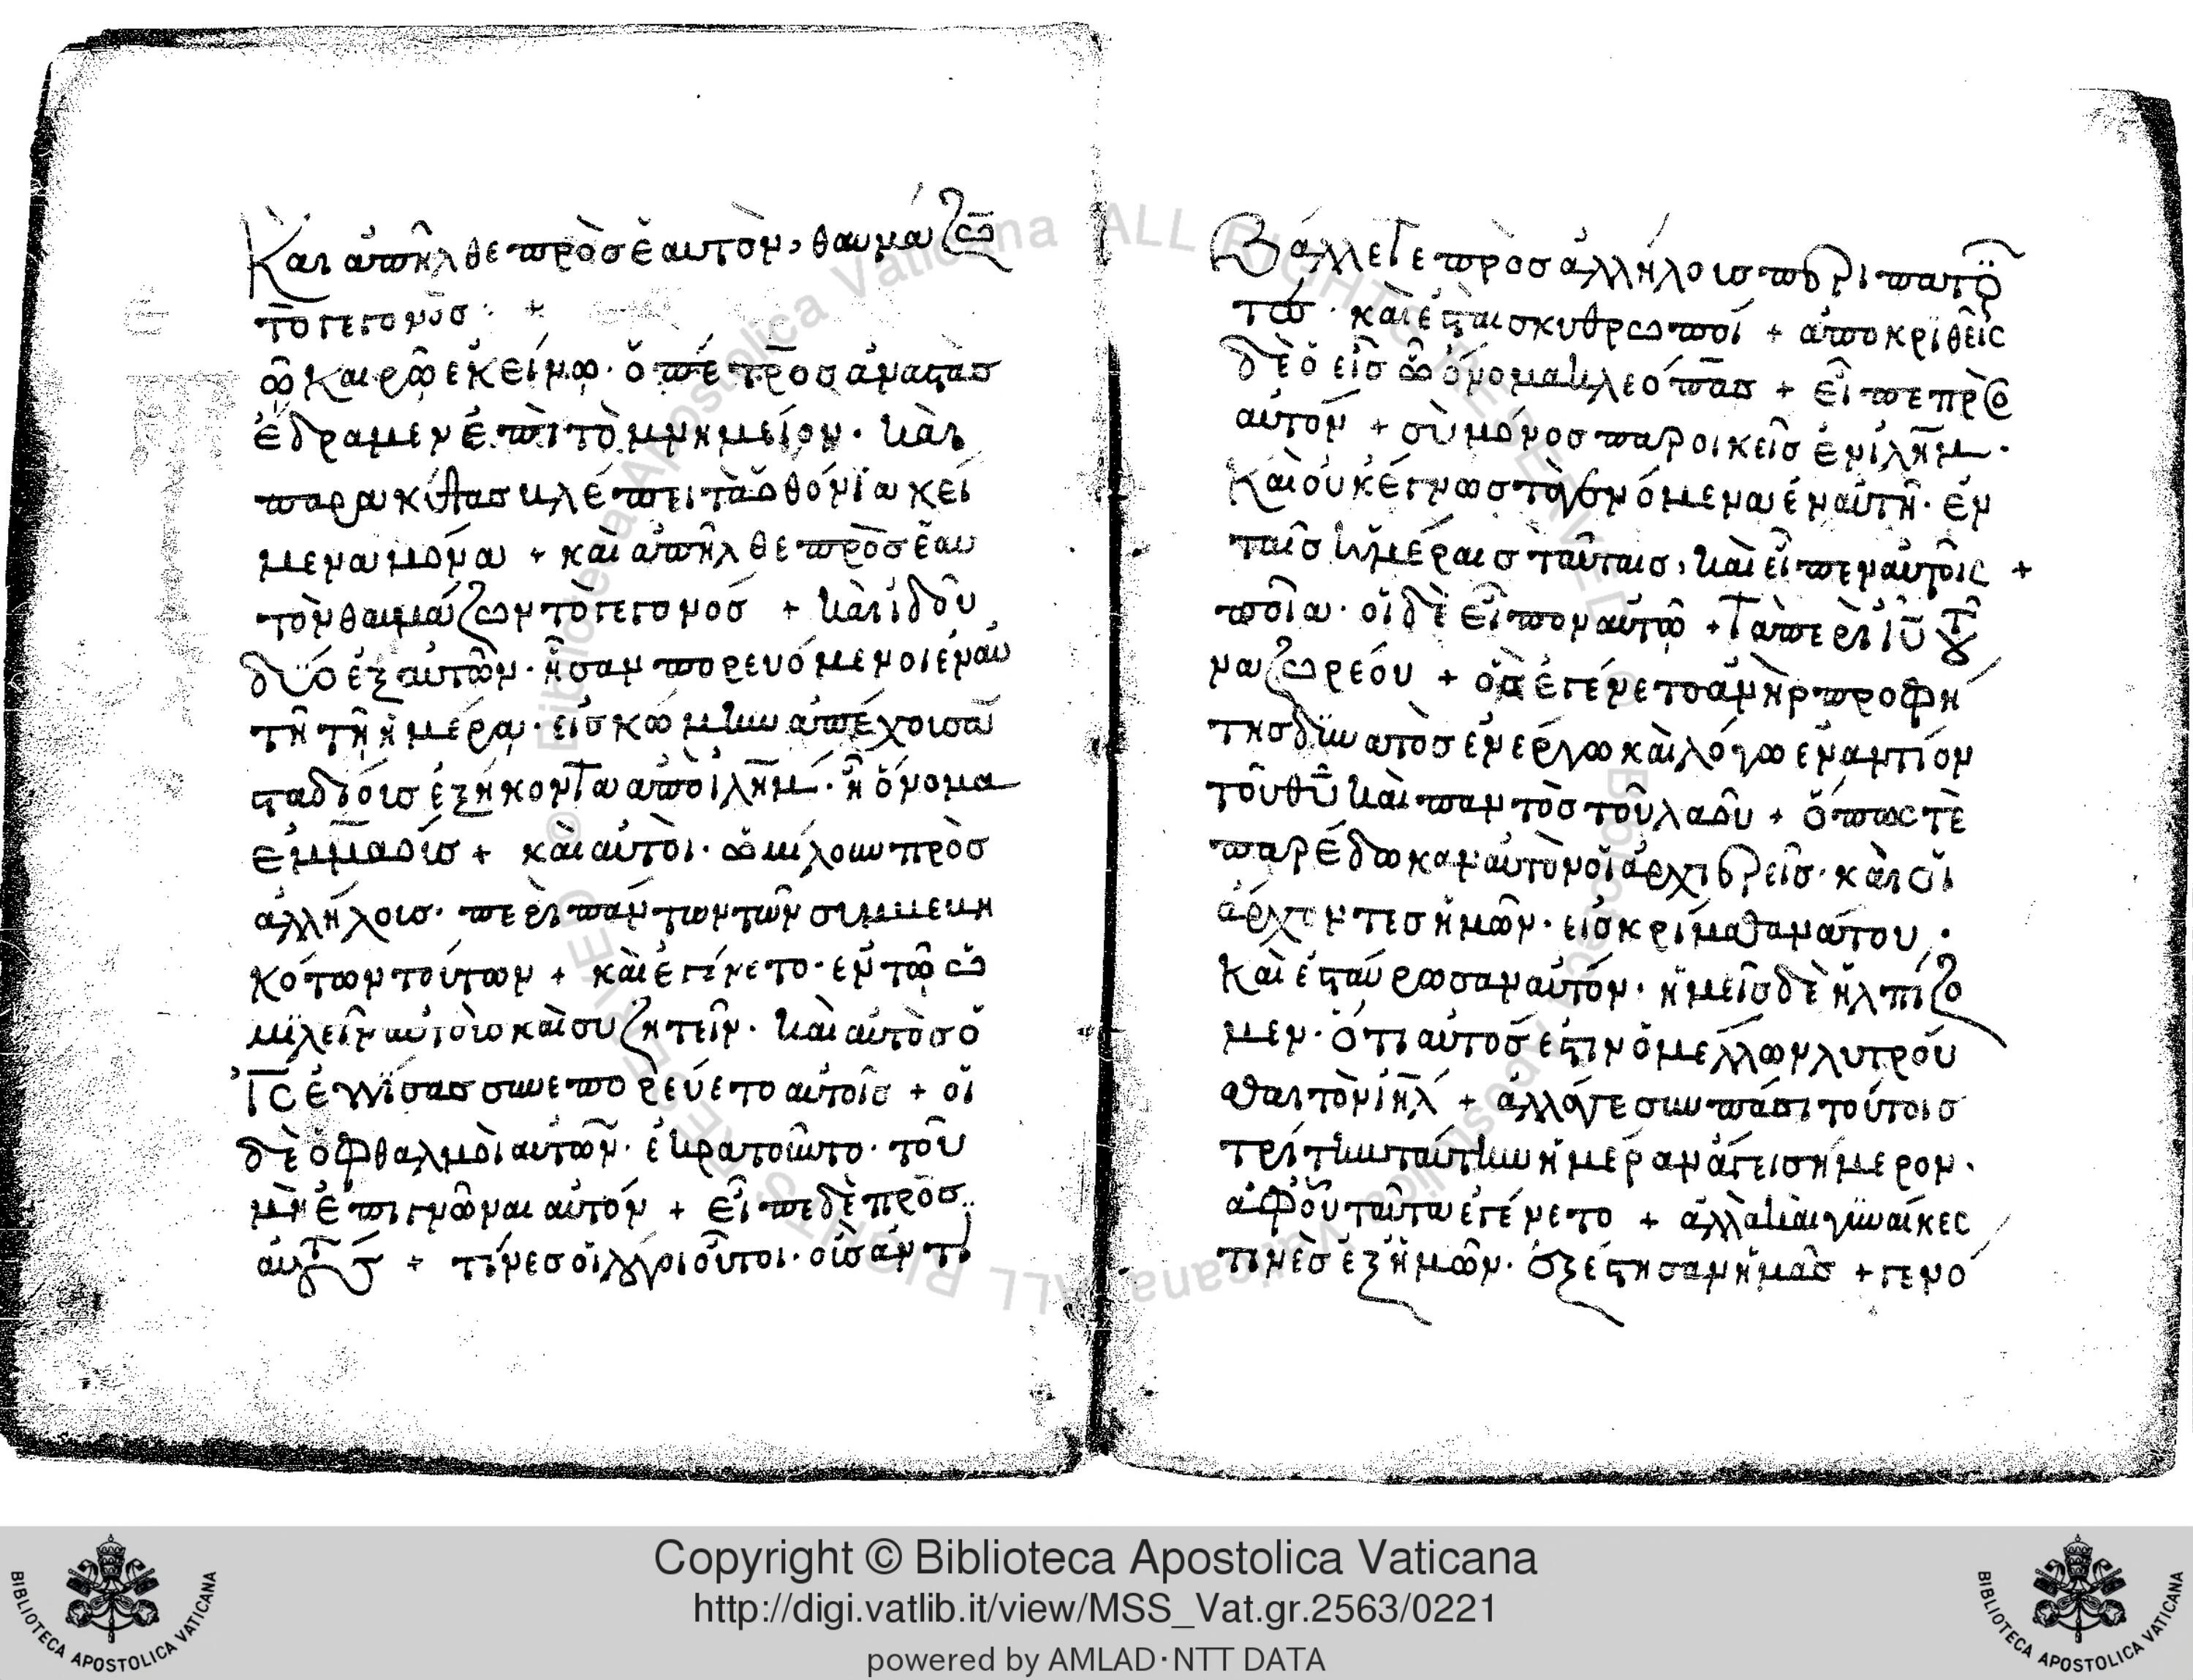 Καὶ ἀπῆλθε πρὸς ἑαυτὸν, θαυμάζω̅
τὸ γεγονὸς · +
ῶ καιρῶ ἐκείνω · ὁ πέτρος ἀναστὰς
ἔδραμεν ἐπὶ τὸ μνημεῖον · καὶ
παρακύψας βλέπει τὰ ὀθόνια κεί
μενα μόνα + καὶ ἀπῆλθε πρὸς ἑαυ
τὸν θαυμάζων τὸ γεγονός + καὶ ἰδοὺ
δύο ἐξ αὐτῶν · ἦσαν πορευόμενοι ἐν αὐ
τῆ τῆ ἡμέρα · εἰς κώμην ἀπέχουσαν
σταδίοις ἑξήκοντα ἀπὸ ἰλη̅μ · ἣ ὄνομα
ἐμμαοίς + καὶ αὐτοὶ · ὡμίλουν πρὸς
ἀλλήλοις · περὶ πάντων τῶν συμβεβη
κότων τούτων + καὶ ἐγένετο · ἐν τῶ ὁ
μιλεῖν αὐτοὺς καὶ συζητεῖν · καὶ αὐτὸς ὁ
ι̅ς̅ ἐγγίσας συνεπορεύετο αὐτοῖς + οἱ
δὲ ὀφθαλμοὶ αὐτῶν · ἐκρατοῦντο · τοῦ
μὴ ἐπιγνῶναι αὐτόν + εἶπε δὲ πρὸς
αὐτούς + τίνες οἱ λόγοι οὗτοι · οἷς ἀντι
Βάλλετε πρὸς ἀλλήλοις περιπατοῦ
τες · καὶ ἐσται σκυθρωποί + ἀποκριθεὶς
δὲ ὁ εἷς ᾧ ὄνομα κλεόπας + εἶπε πρὸς
αὐτόν + σὺ μόνος παροικεῖς ἐν ἰλη̅μ ·
Καὶ οὐκ ἔγνως τὰ γενόμενα ἐν αὐτῆ · ἐν
ταῖς ἡμέραις ταύταις, καὶ εἶπεν αὐτοῖς +
ποῖα · οἱ δὲ εἶπον αὐτῶ + Τὰ περὶ ι̅υ̅ τοῦ
ναζωρέου + ὃς ἐγένετο ἀνὴρ προφή
της δυνατὸς ἐν ἔργω καὶ λόγω ἐναντίον
τοῦ θ̅υ̅ καὶ παντὸς τοῦ λαοῦ + ὅπως τὲ
παρέδωκαν αὐτὸν οἱ ἀρχιερεῖς · καὶ οἱ
ἄρχοντες ἡμῶν · εἰς κρίμα θανάτου ·
Καὶ ἐσταύρωσαν αὐτόν · ἡμεῖς δὲ ἠλπίζο
μεν · ὅτι αὐτός ἐστιν ὁ μέλλων λυτροῦ
σθαι τὸν ἰη̅λ + ἀλλάγε συν πάσι τούτοις
τρίτην ταύτην ἡμέραν ἄγει σήμερον ·
ἀφ' οὗ ταῦτα ἐγένετο + ἀλλὰ καὶ γυναῖκες
τινὲς ἐξ ἡμῶν · ἐξέστησαν ἡμᾶς + γενό
Copyright © Biblioteca Apostolica Vaticana
http://digi.vatlib.it/view/MSS_Vat.gr.2563/0221
powered by AMLAD·NTT DATA
BIBLIOTECA APOSTOLICA VATICANA
BIBLIOTECA APOSTOLICA VATICANA